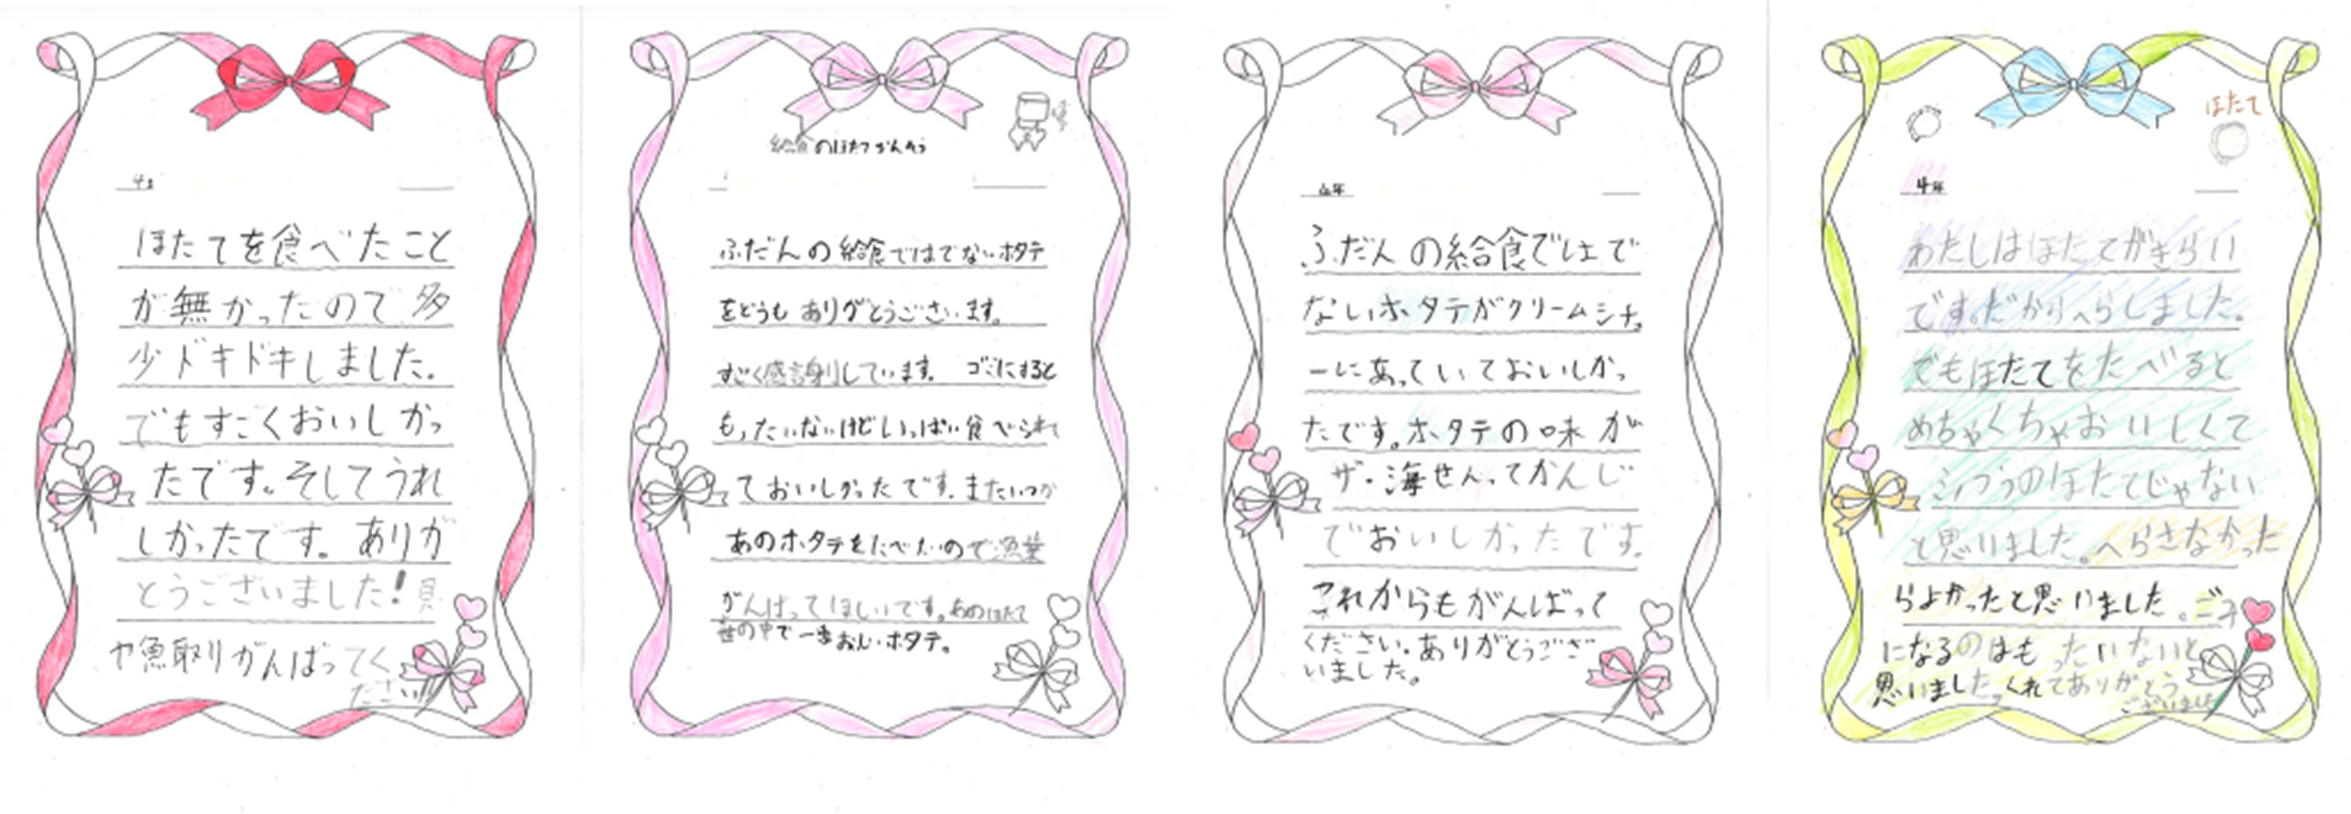 4年
ほたてを食べたこと
が無かったので多
少ドキドキしました。
でもすごくおいしかっ
たです。そしてうれ
しかったです。ありが
とうございました!貝
や魚取りがんばってく
ださい!!
給食のほたてかんそう
ふだんの給食ではでないホタテ
をどうもありがとうございます。
すごく感謝しています。ゴミにすると
もったいないけどいっぱい食べられ
ておいしかったです。またいつか
あのホタテをたべたいので漁業
がんばってほしいです。あのほたて
世の中で一番おいしいホタテ。
4年
ふだんの給食ではで
ないホタテがクリームシチュ
ーにあっていておいしかっ
たです。ホタテの味が
ザ・海せんってかんじ
でおいしかったです。
これからもがんばって
ください。ありがとうござ
いました。
ほたて
4年
わたしはほたてがきらい
です。だからへらしました。
でもほたてをたべると
めちゃくちゃおいしくて
ふつうのほたてじゃない
と思いました。へらさなかった
らよかったと思いました。ゴミ
になるのはもったいないと
思いました。くれてありがとう
ございました